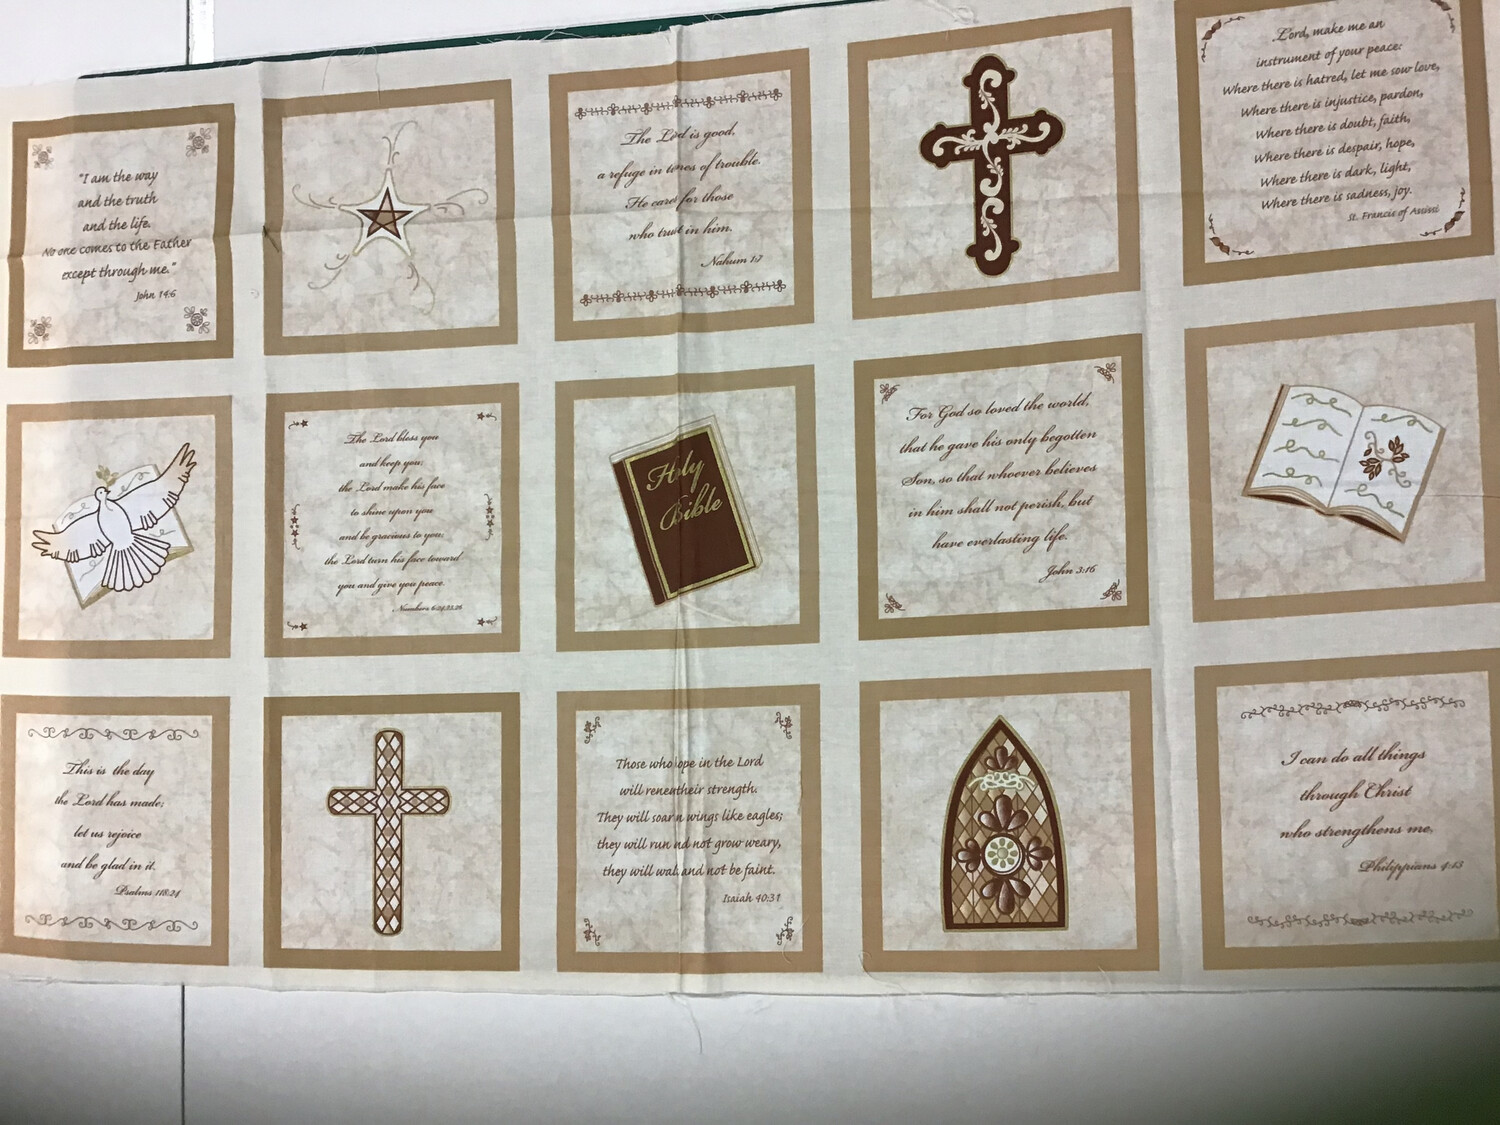 "I am the way
and the truth
and the life.
No one comes to the Father
except through me."
John 14:6
The Lord is good,
a refuge in times of trouble.
He cares for those
who trust in him.
Nahum 1:7
Lord, make me an
instrument of your peace:
Where there is hatred, let me sow love,
Where there is injustice, pardon,
Where there is doubt, faith,
Where there is despair, hope,
Where there is dark, light,
Where there is sadness, joy.
St. Francis of Assissi
The Lord bless you
and keep you;
the Lord make his face
to shine upon you
and be gracious to you;
the Lord turn his face toward
you and give you peace.
Numbers 6:24,25,26
Holy
Bible
For God so loved the world,
that he gave his only begotten
Son, so that whoever believes
in him shall not perish, but
have everlasting life.
John 3:16
This is the day
the Lord has made;
let us rejoice
and be glad in it.
Psalms 118:24
Those who ope in the Lord
will renew their strength.
They will soar n wings like eagles;
they will run nd not grow weary,
they will walk and not be faint.
Isaiah 40:31
I can do all things
through Christ
who strengthens me.
Philippians 4:13